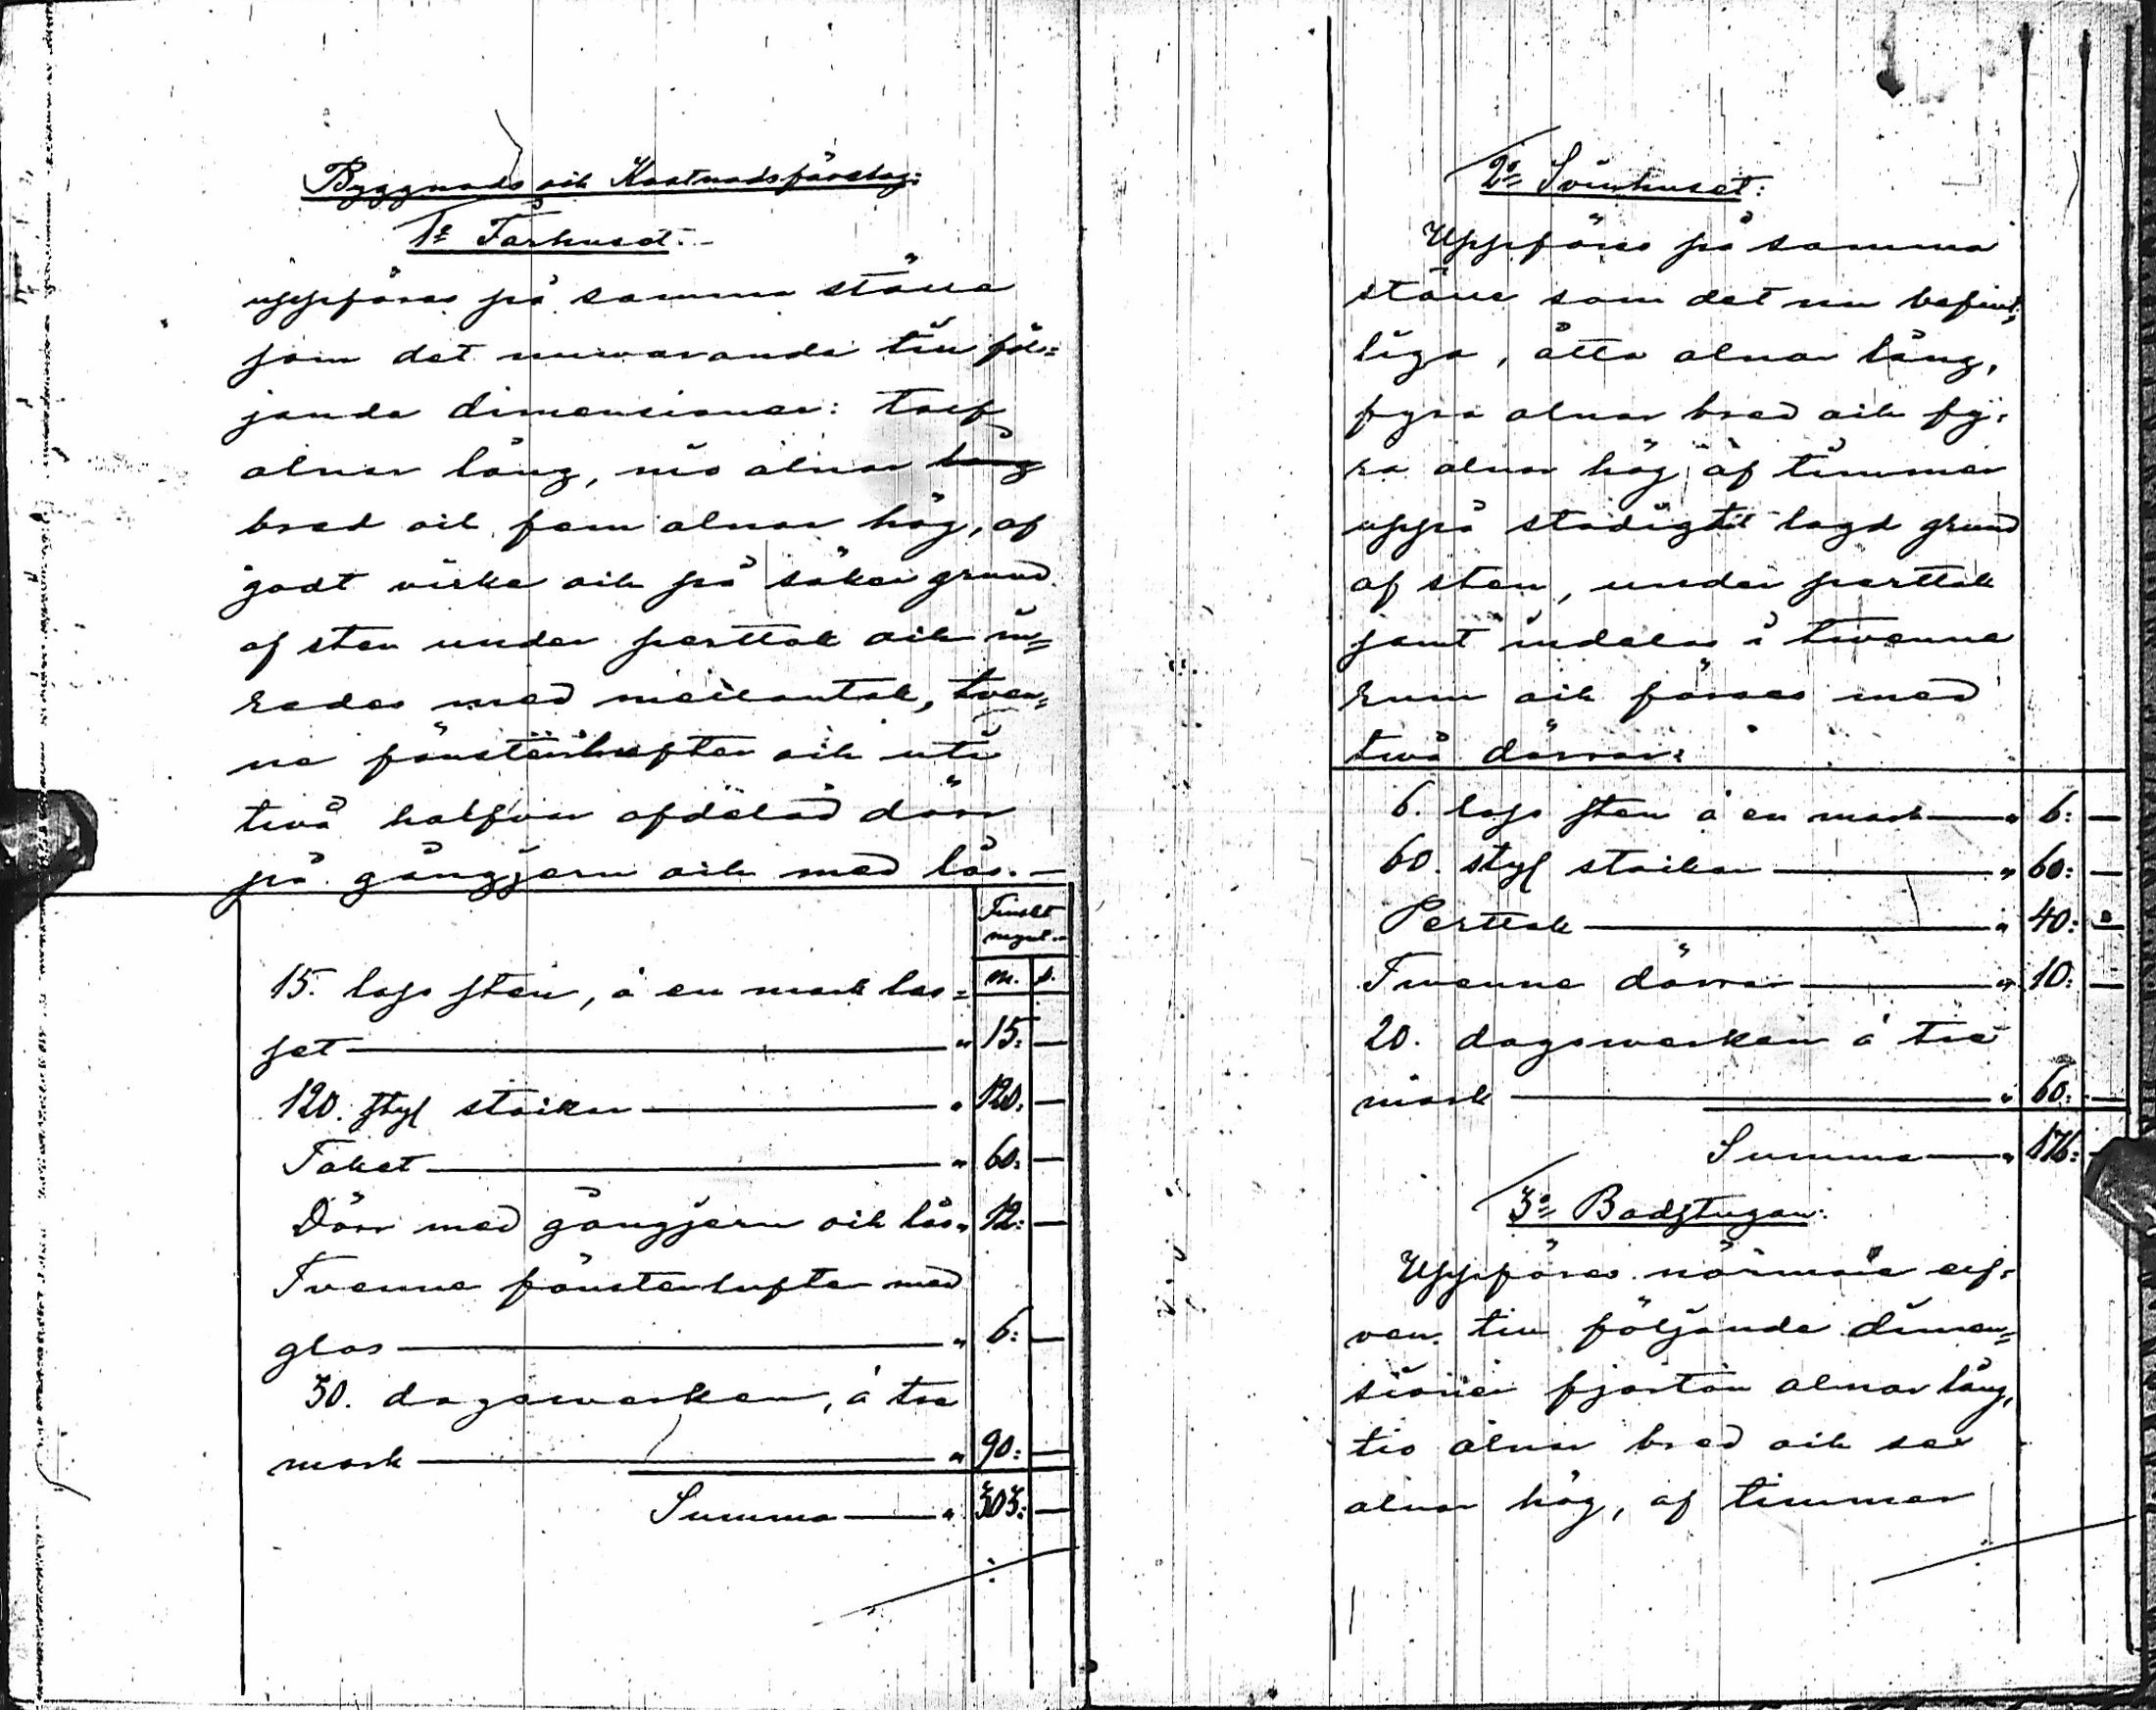 Byggnads och Kostnadsförslag:
1o Fårhuset.
uppföres på samma ställe
som det nuvarande till föl=
jande dimensioner: tolf
alnar lång, nio alnar lång
bred och fem alnar hög, af
godt virke och på säker grund
af sten under perttak och in=
redes med mellantak, tven=
ne fönsterlufter och uti
två halfvor afdelad dörr
på gångjern och med lås.—
Finskt
mynt.
m. p.
15. lass sten, á en mark las=
set — " 15: —
120. styc stockar — " 120. —
Taket — " 60: —
Dörr med gångjern och lås " 12: —
Tvenne fönsterlufter med
glas — " 6: —
30. dagsverken, á tre
mark — " 90: —
Summa — " 303: —
2o Svinhuset:
Uppföres på samma
ställe som det nu befint=
liga, åtta alnar lång,
fyra alnar bred och fy=
ra alnar hög af timmer
uppå stadigt lagd grund
af sten, under perttak
samt indelas i tvenne
rum och förses med
två dörrar:
6. lass sten á en mark — " 6: —
60. styc stockar — " 60: —
Perttak — " 40: —
Tvenne dörrar — " 10: —
20. dagsverken á tre
mark — " 60: —
Summa — " 176: —
3o Badstugan:
Uppföres närmare elf=
ven till följande dimen=
sioner fjorton alnar lång,
tio alnar bred och sex
alnar hög, af timmer